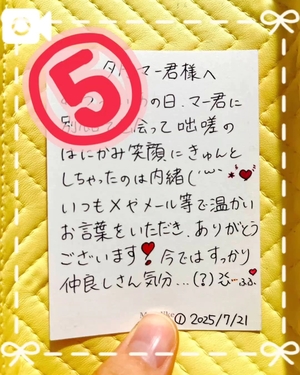 ⑤
マー君様へ
の日、マー君に
会って咄嗟の
はにかみ笑顔にきゅんと
しちゃったのは内緒(
いつもXやメール等で温かい
お言葉をいただき、ありがとう
ございます❣今ではすっかり
仲良しさん気分…(?)
① 2025/7/21